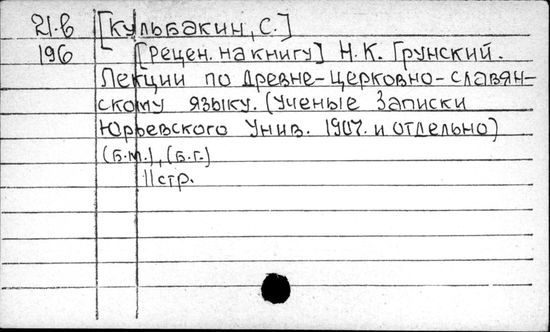 21.в [Кульбакин, С.]
196 [Рецен. на книгу] Н.К. Грунский.
Лекции по древне-церковно-славян=
скому языку. (Ученые Записки
Юрьевского Унив. 1907. и отдельно)
(б.м.), (б.г.)
11 стр.